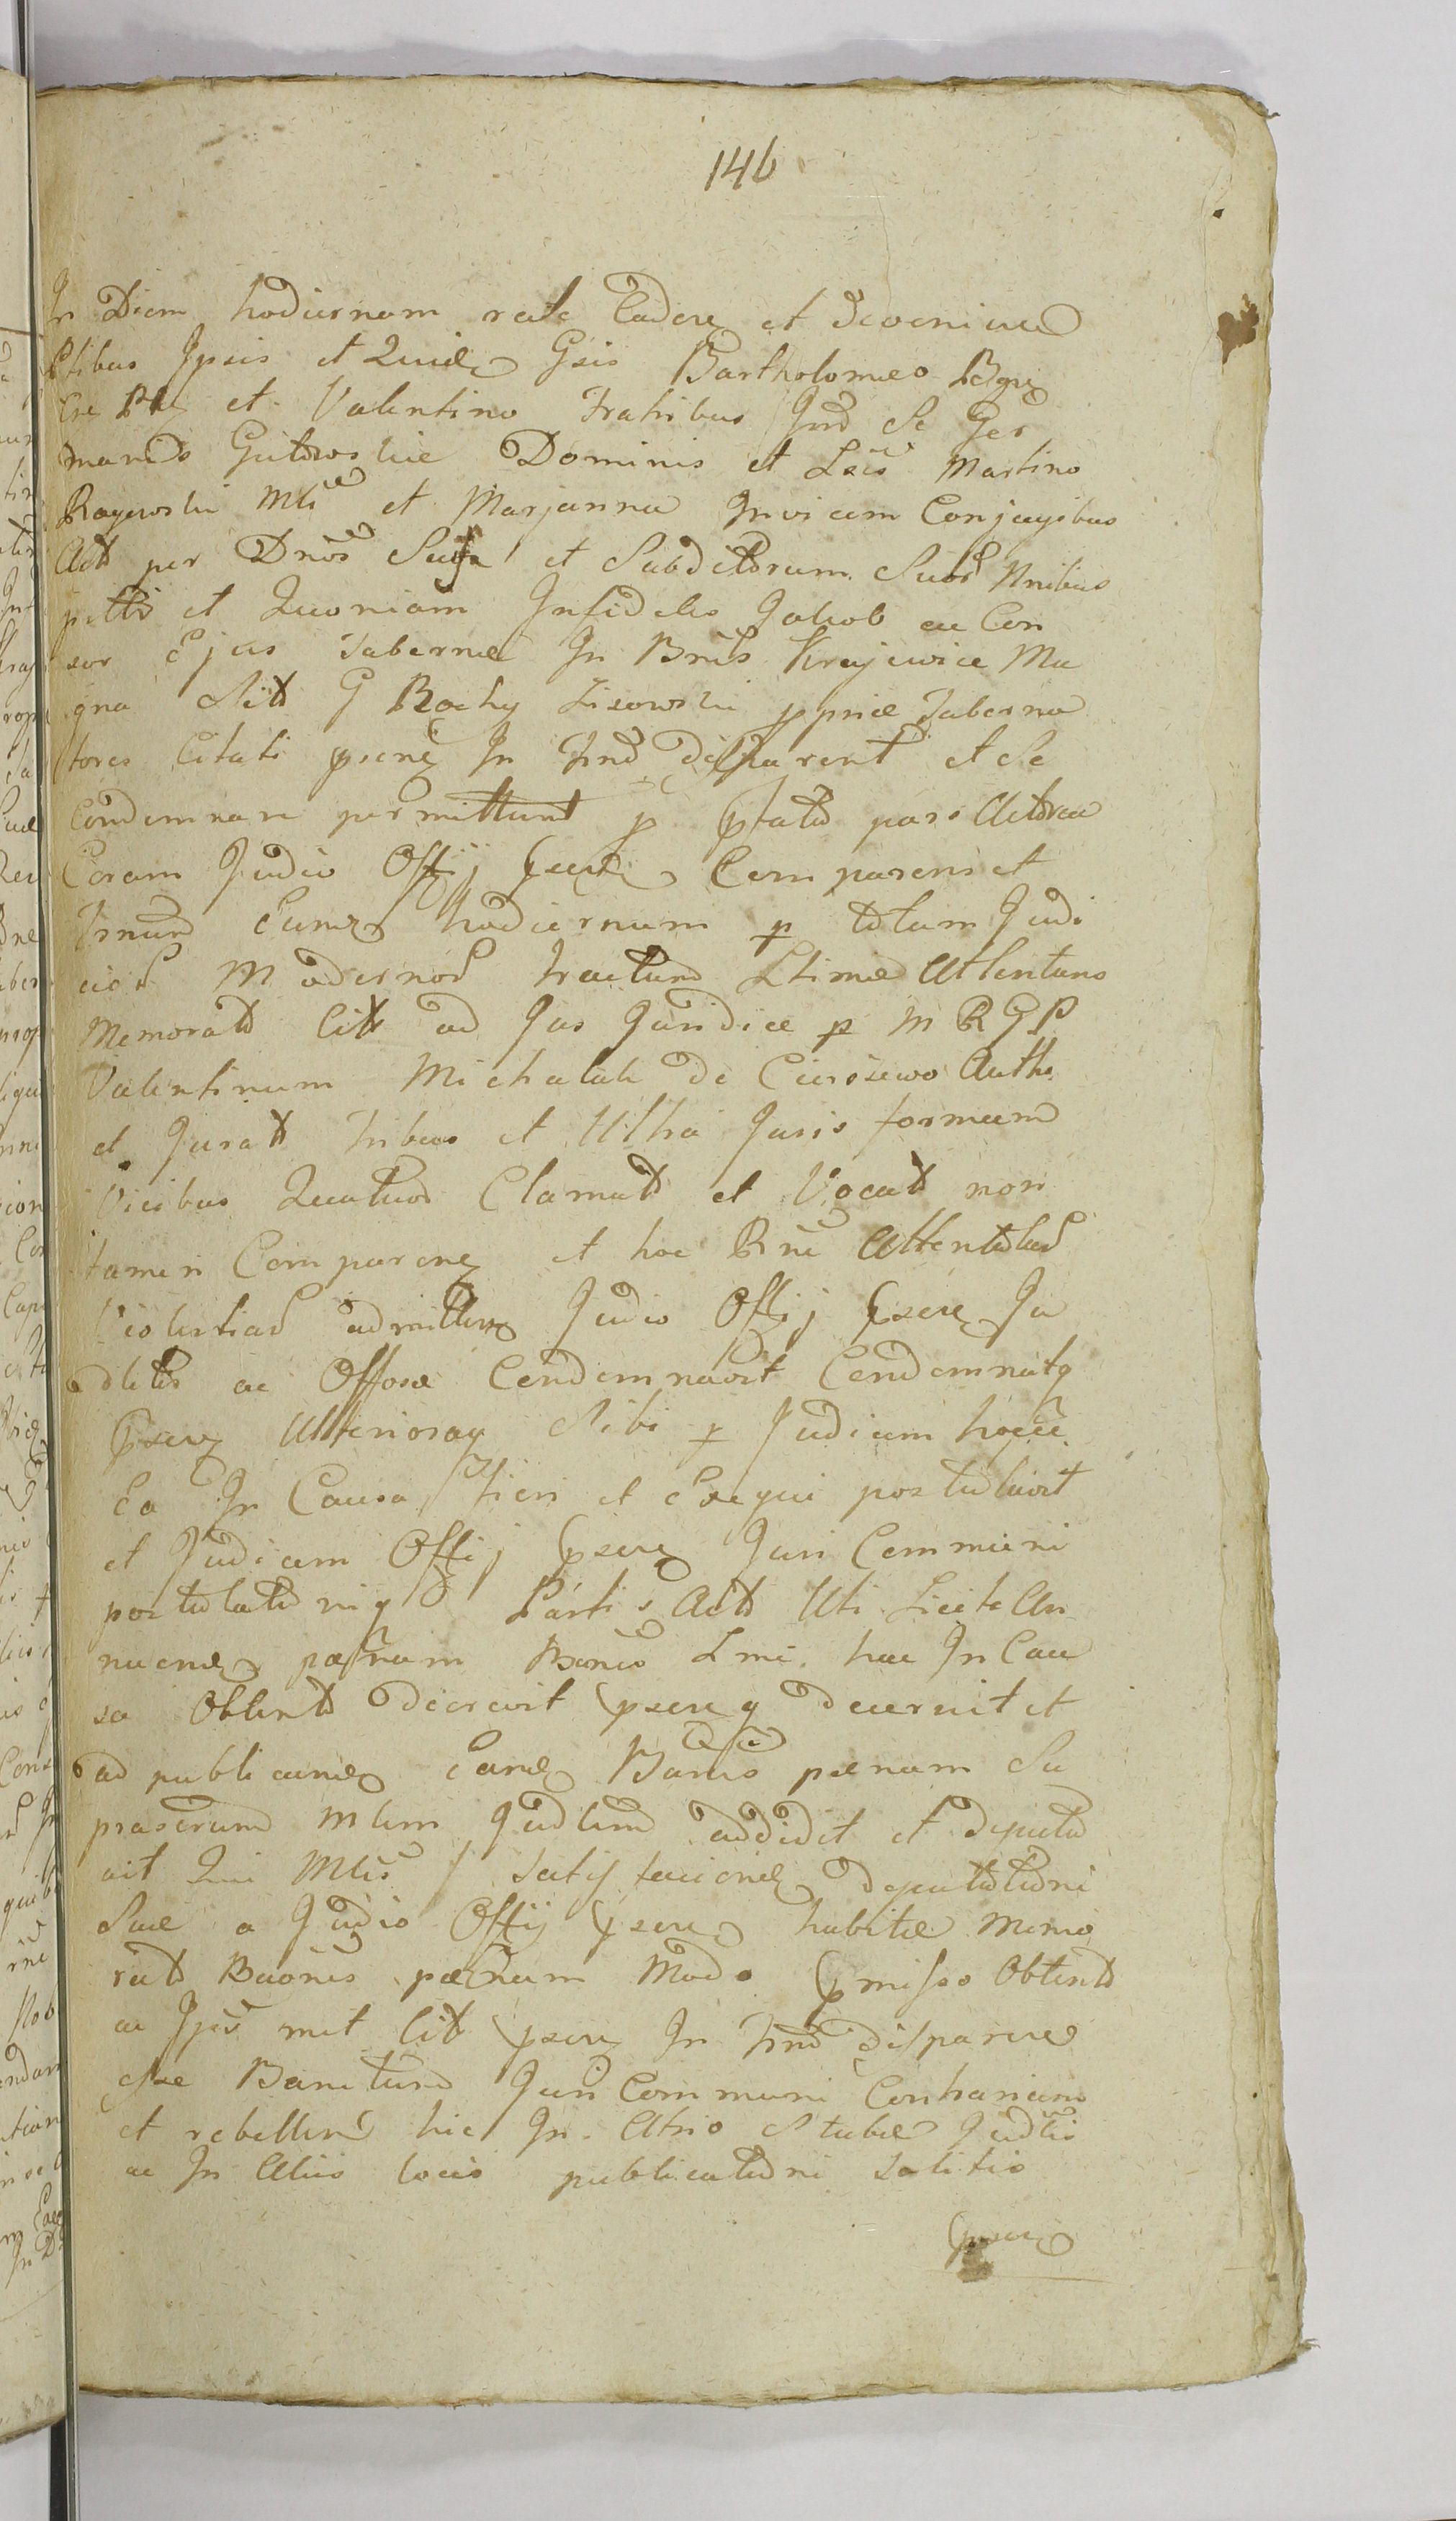 146
In Diem hodiernam rite Caden et devenien
Ptibus Ipsis et Quide Gsis Bartholomeo
et Valentino Fratribus Inter Se Ger
manis Gutowskie Dominis et Martino
Rogowski et Marjanna Invicem Conjugibus
Act per Dnos Suos et Subditorum Suor Omnibus
pttis et Quoniam Infidelis Jakob ac Con
sor Ejus Tabernae In Bnis Krajewice Ma
gna Sitt G Rochy Lisowski ppriae Taberna
tores Citati psene In Tmo disparent et Se
Condemnare permittunt p pars Actorea
Coram Judio Offij psente Comparens et
Trnum Eumq hodiernum p totum Judi
cior Modernor tractum Ltime Attentans
Memorat Citt ad Jus Juridice p M R G P
Valentinum Michalak de Autho
et Jurat tribus et Ultra Juris formam
Vicibus Quatuor Clamat et Vocat non
tamen Comparen et hoc Rne Attentatur
admitten Judio Offij psen Ju
dltis ac Offosa Condemnavit Condemnatq
psen Ulterioraq Sibi p Judicium hocce
Ea In Causa Fieri et Exequi postulavit
et Judicium Offij psens Juri Communi
postulationiq Partis Act Uti Licite An
nuend paenam Banis Lmi hac In Cau
sa Obtent decrevit psensq decernit et
ad publicand Eand Banis paenam Su
prascrum Mlem Judlem addidit et deputa
vit Qui Mlis Satisfaciend deputationi
Suae a Judio Offij psen habitae Memo
rat Baonis paenam Modo pmisso Obtent
ac Ipsis met Citt psen In Tmo disparere
esse Banitum Juri Communi Contrarium
et rebellem hic In Atrio Stubae Judlis
ac In Aliis locis publicationi Solitis
psen